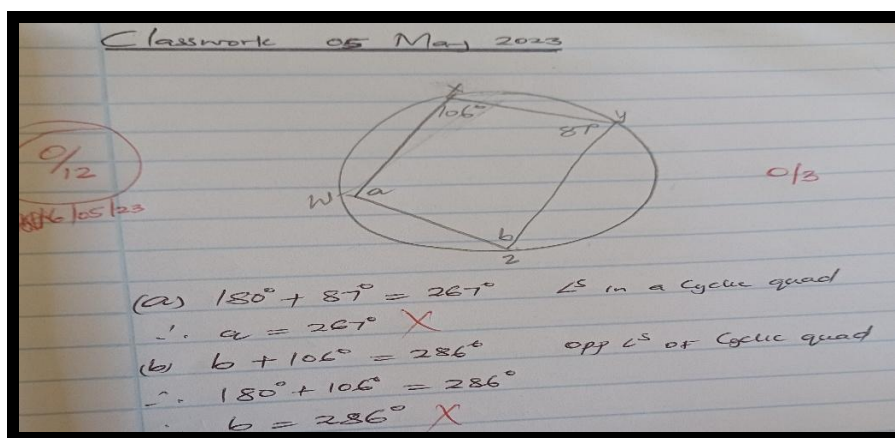 Classwork 05 May 2023
x
106°
87°
y
0/12
0/3
W a
16/05/23
b
z
(a) 180° + 87° = 267° ∠s in a Cyclic quad
∴ a = 267° X
(b) b + 106° = 286° opp ∠s of Cyclic quad
∴ 180° + 106° = 286°
b = 286° X